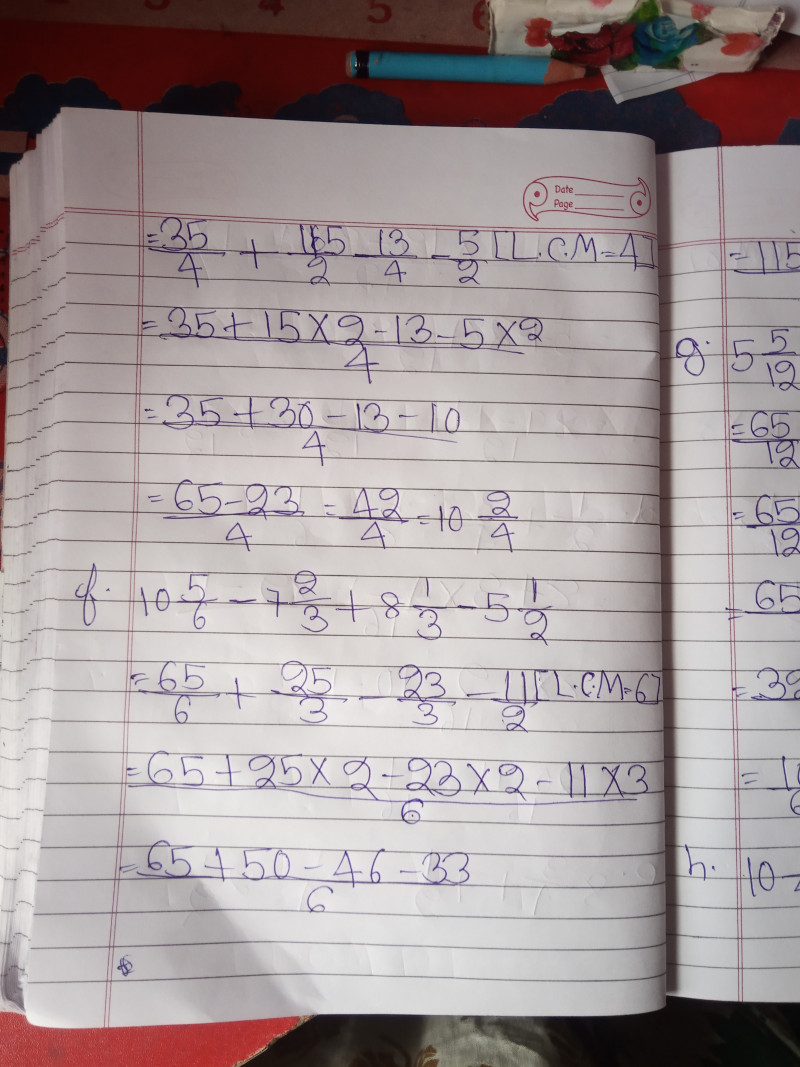 5
Date
Page
= 35/4 + 165/2 - 13/4 - 5/2 [L.C.M=4]
= 35+15×2-13-5×2/4
= 35+30-13-10/4
= 65-23/4 = 42/4 = 10 2/4
f. 10 5/6 - 7 2/3 + 8 1/3 - 5 1/2
= 65/6 + 25/3 - 23/3 - 11/2 [L.C.M=6]
= 65+25×2-23×2-11×3/6
= 65+50-46-33/6
= 115
g. 5 5/12
= 65/12
= 65/12
= 65
h. 10